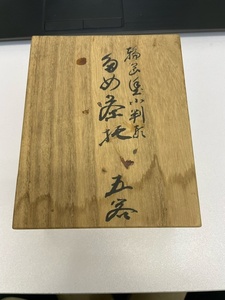 輪島塗小判形
ため茶托
五客